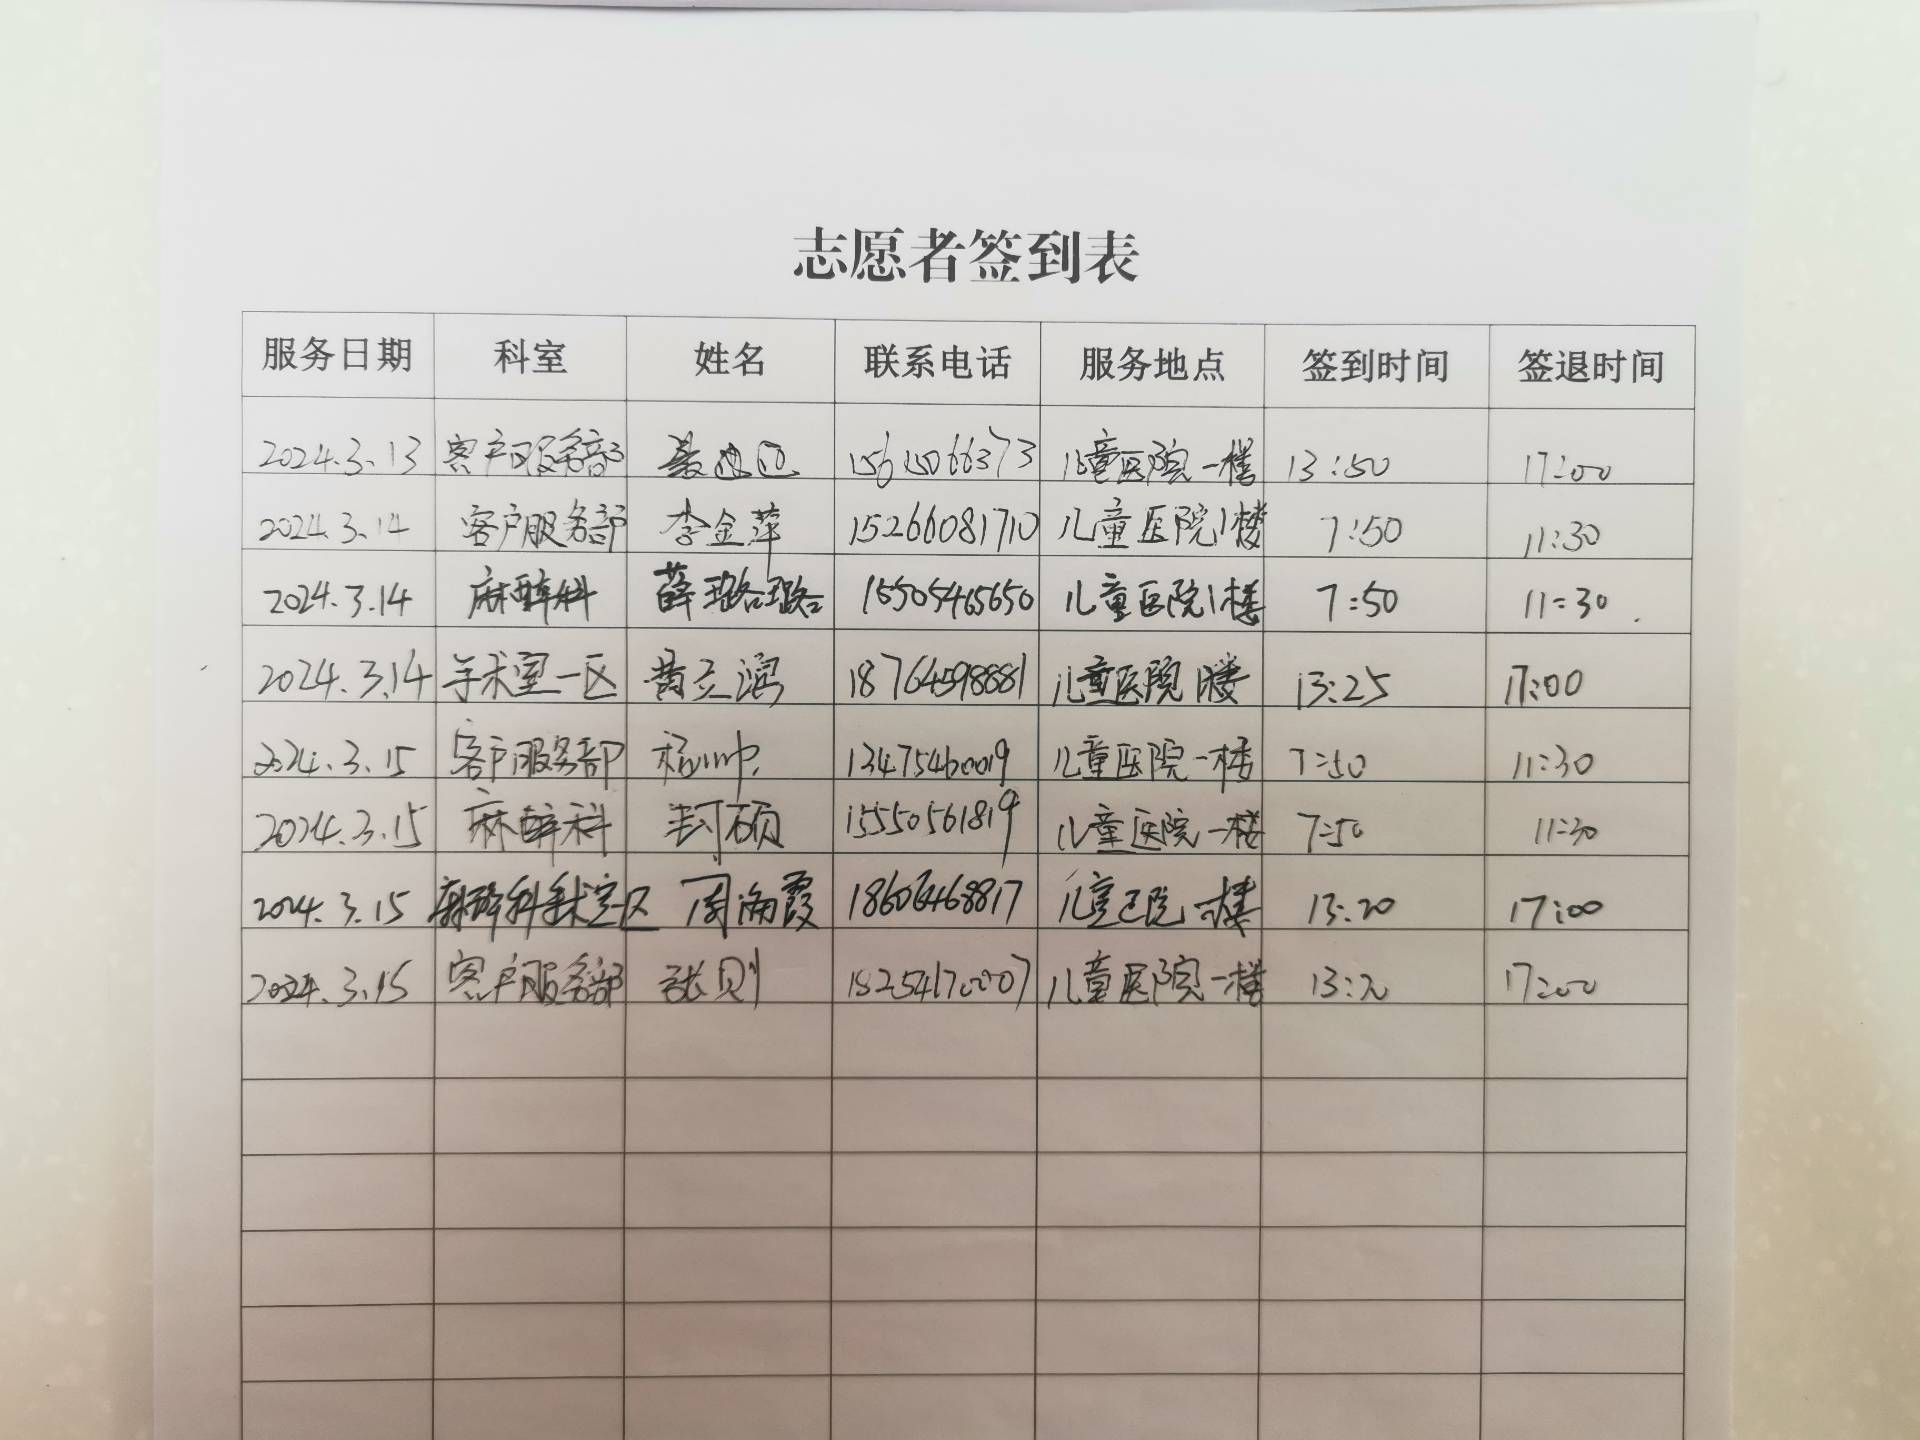 志愿者签到表
服务日期 科室 姓名 联系电话 服务地点 签到时间 签退时间
2024.3.13 客户服务部 儿童医院一楼 13:50 17:00
2024.3.14 客户服务部 李金萍 15266081710 儿童医院1楼 7:50 11:30
2024.3.14 麻醉科 薛璐璐 15505465650 儿童医院1楼 7:50 11:30
2024.3.14 手术室一区 黄立滨 18764598881 儿童医院1楼 13:25 17:00
2024.3.15 客户服务部 杨帅 13475460019 儿童医院一楼 7:50 11:30
2024.3.15 麻醉科 封硕 15550561819 儿童医院一楼 7:50 11:30
2024.3.15 麻醉科手术室一区 周海霞 18606468817 儿童医院一楼 13:20 17:00
2024.3.15 客户服务部 张则 18254170007 儿童医院一楼 13:20 17:00